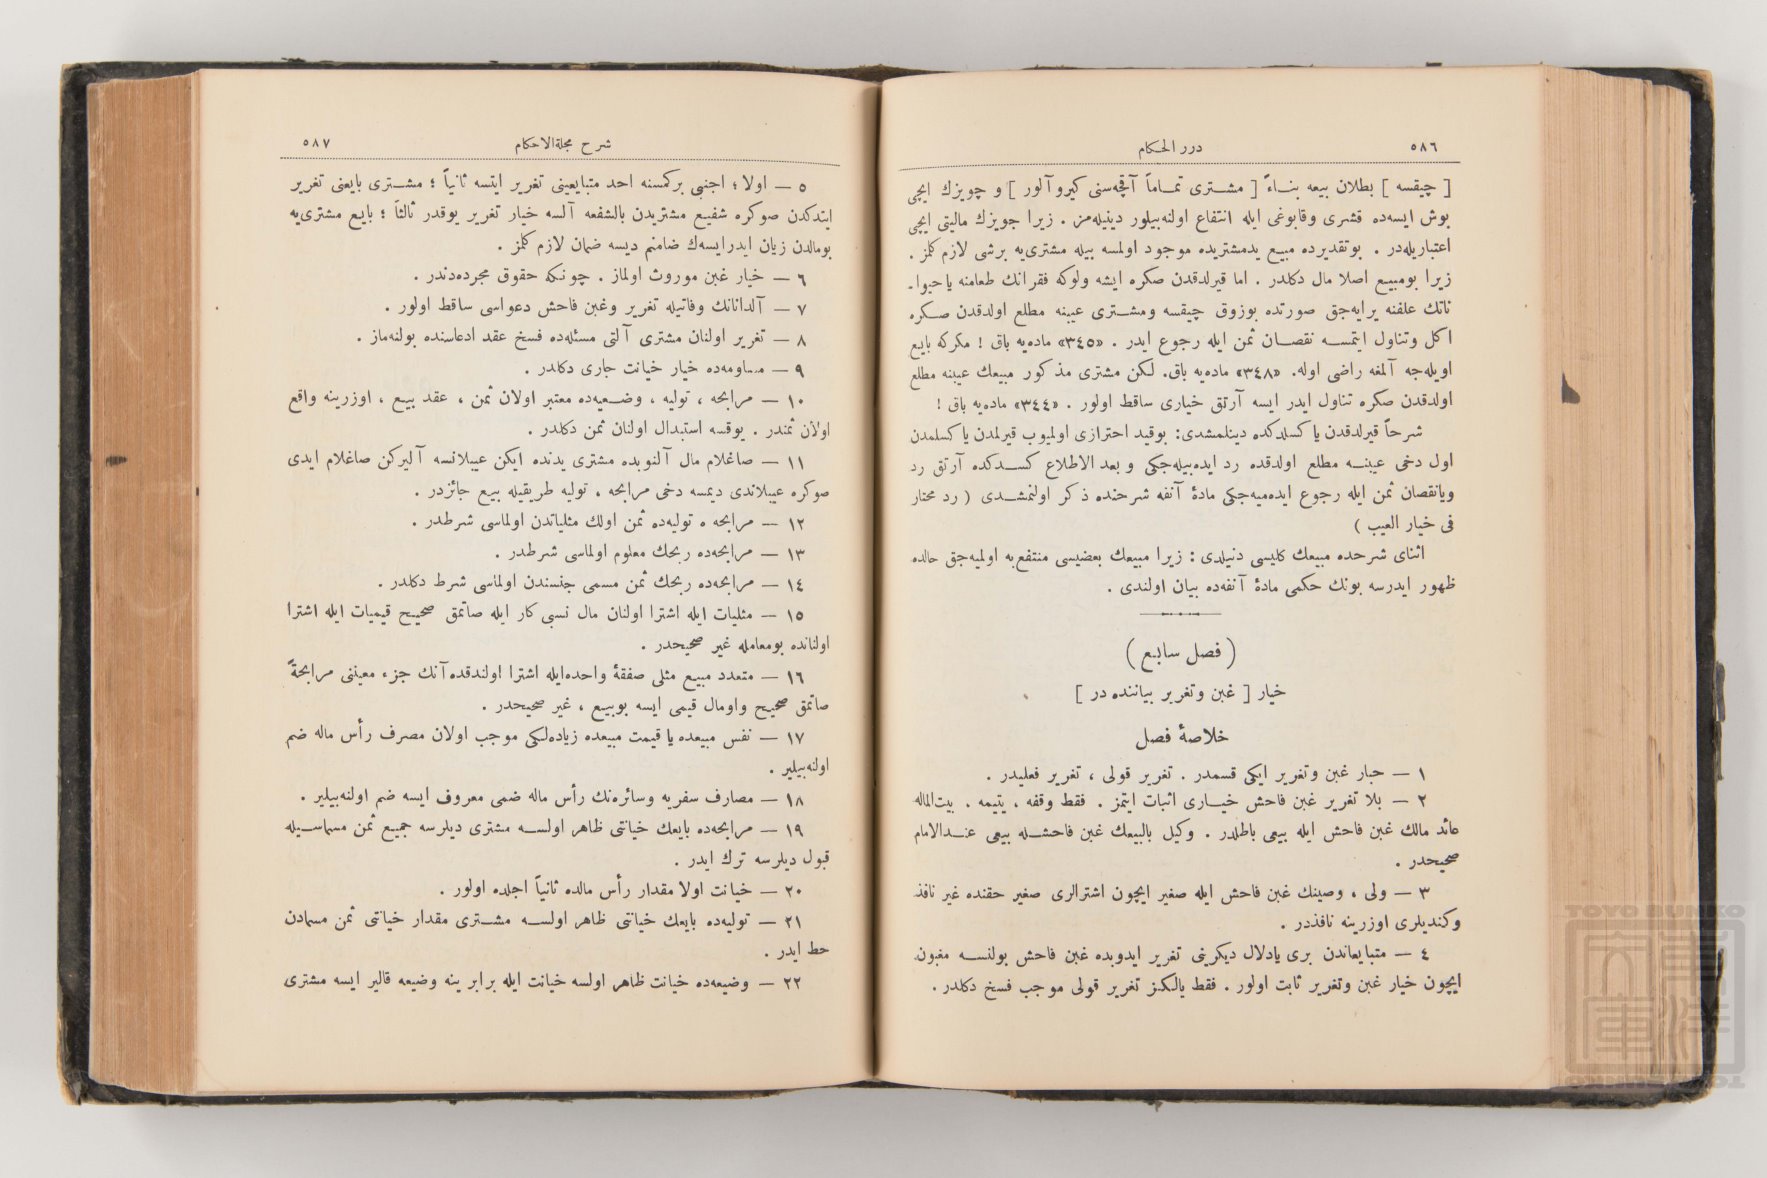 ٥٨٦
درر الحكام
[ چيقسه ] بطلان بيعه بناءً [ مشترى تماماً آقچه‌سنى كيروآلور ] و جويزك ايچى
بوش ايسه‌ده قشرى وقابوغى ايله انتفاع اولنه‌بيلور دينيله‌مز . زيرا جويزك ماليتى ايچى
اعتباريله‌در . بوتقديرده مبيع يدمشتريده موجود اولمسه بيله مشترى‌يه برشى لازم كلمز .
زيرا بومبيع اصلا مال دكلدر . اما قيرلدقدن صكره ايشه ولوكه فقرانك طعامنه ياحيوا-
ناتك علفنه يرايه‌جق صورتده بوزوق چيقسه ومشترى عيبنه مطلع اولدقدن صكره
اكل وتناول ايتمسه نقصان ثمن ايله رجوع ايدر . «٣٤٥» ماده‌يه باق ! مكركه بايع
اويله‌جه آلمغه راضى اوله. «٣٤٨» ماده‌يه باق. لكن مشترى مذكور مبيعك عيبنه مطلع
اولدقدن صكره تناول ايدر ايسه آرتق خيارى ساقط اولور . «٣٤٤» ماده‌يه باق !
شرحاً قيرلدقدن ياكسلدكده دينلمشدى: بوقيد احترازى اولميوب قيرلمدن ياكسلمدن
اول دخى عيبنه مطلع اولدقده رد ايده‌بيله‌جكى و بعد الاطلاع كسدكده آرتق رد
ويانقصان ثمن ايله رجوع ايده‌ميه‌جكى مادۀ آنفه شرحنده ذكر اولنمشدى ( رد محتار
فى خيار العيب )
اثناى شرحده مبيعك كليسى دنيلدى : زيرا مبيعك بعضيسى منتفع‌به اولميه‌جق حالده
ظهور ايدرسه بونك حكمى مادۀ آنفه‌ده بيان اولندى .
( فصل سابع )
خيار [ غبن وتغرير بياننده در ]
خلاصۀ فصل
١ — خيار غبن وتغرير ايكى قسمدر . تغرير قولى ، تغرير فعليدر .
٢ — بلا تغرير غبن فاحش خيارى اثبات ايتمز . فقط وقفه ، يتيمه ، بيت‌الماله
عائد مالك غبن فاحش ايله بيعى باطلدر . وكيل بالبيعك غبن فاحشله بيعى عندالامام
صحيحدر .
٣ — ولى ، وصينك غبن فاحش ايله صغير ايچون اشترالرى صغير حقنده غير نافذ
وكنديلرى اوزرينه نافذدر .
٤ — متبايعاندن برى يادلال ديكرينى تغرير ايدوبده غبن فاحش بولنسه مغبون
ايچون خيار غبن وتغرير ثابت اولور . فقط يالكز تغرير قولى موجب فسخ دكلدر .
شرح مجلةالاحكام
٥٨٧
٥ — اولا ؛ اجنبى بركمسنه احد متبايعينى تغرير ايتسه ثانياً ؛ مشترى بايعنى تغرير
ايتدكدن صوكره شفيع مشتريدن بالشفعه آلسه خيار تغرير يوقدر ثالثاً ؛ بايع مشترى‌يه
بومالدن زيان ايدرايسه‌ك ضامنم ديسه ضمان لازم كلمز .
٦ — خيار غبن موروث اولماز . چونكه حقوق مجرده‌دندر .
٧ — آلدانانك وفاتيله تغرير وغبن فاحش دعواسى ساقط اولور .
٨ — تغرير اولنان مشترى آلتى مسئله‌ده فسخ عقد ادعاسنده بولنه‌ماز .
٩ — مساومه‌ده خيار خيانت جارى دكلدر .
١٠ — مرابحه ، توليه ، وضعيه‌ده معتبر اولان ثمن ، عقد بيع ، اوزرينه واقع
اولان ثمندر . يوقسه استبدال اولنان ثمن دكلدر .
١١ — صاغلام مال آلنوبده مشترى يدنده ايكن عيبلانسه آليركن صاغلام ايدى
صوكره عيبلاندى ديمسه دخى مرابحه ، توليه طريقيله بيع جائزدر .
١٢ — مرابحه ه توليه‌ده ثمن اولك مثلياتدن اولماسى شرطدر .
١٣ — مرابحه‌ده ربحك معلوم اولماسى شرطدر .
١٤ — مرابحه‌ده ربحك ثمن مسمى جنسندن اولماسى شرط دكلدر .
١٥ — مثليات ايله اشترا اولنان مال نسبى كار ايله صاتمق صحيح قيميات ايله اشترا
اولنانده بومعامله غير صحيحدر .
١٦ — متعدد مبيع مثلى صفقۀ واحده‌ايله اشترا اولندقده آنك جزء معيننى مرابحةً
صاتمق صحيح واومال قيمى ايسه بوبيع ، غير صحيحدر .
١٧ — نفس مبيعده يا قيمت مبيعده زياده‌لكى موجب اولان مصرف رأس ماله ضم
اولنه‌بيلير .
١٨ — مصارف سفريه وسائره‌نك رأس ماله ضمى معروف ايسه ضم اولنه‌بيلير .
١٩ — مرابحه‌ده بايعك خيانتى ظاهر اولسه مشترى ديلرسه جميع ثمن مسماسيله
قبول ديلرسه ترك ايدر .
٢٠ — خيانت اولا مقدار رأس مالده ثانياً اجلده اولور .
٢١ — توليه‌ده بايعك خيانتى ظاهر اولسه مشترى مقدار خيانتى ثمن مسمادن
حط ايدر .
٢٢ — وضيعه‌ده خيانت ظاهر اولسه خيانت ايله برابر ينه وضيعه قالير ايسه مشترى
TOYO BUNKO